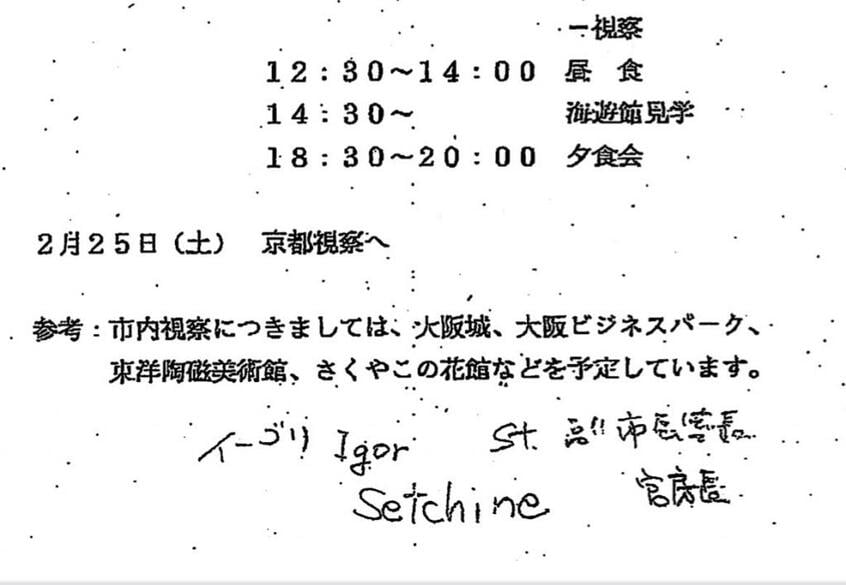 ー視察
12:30〜14:00 昼 食
14:30〜 海遊館見学
18:30〜20:00 夕食会
2月25日(土) 京都視察へ
参考:市内視察につきましては、大阪城、大阪ビジネスパーク、
東洋陶磁美術館、さくやこの花館などを予定しています。
イーゴリ Igor St. 副市長
Setchine 官房長